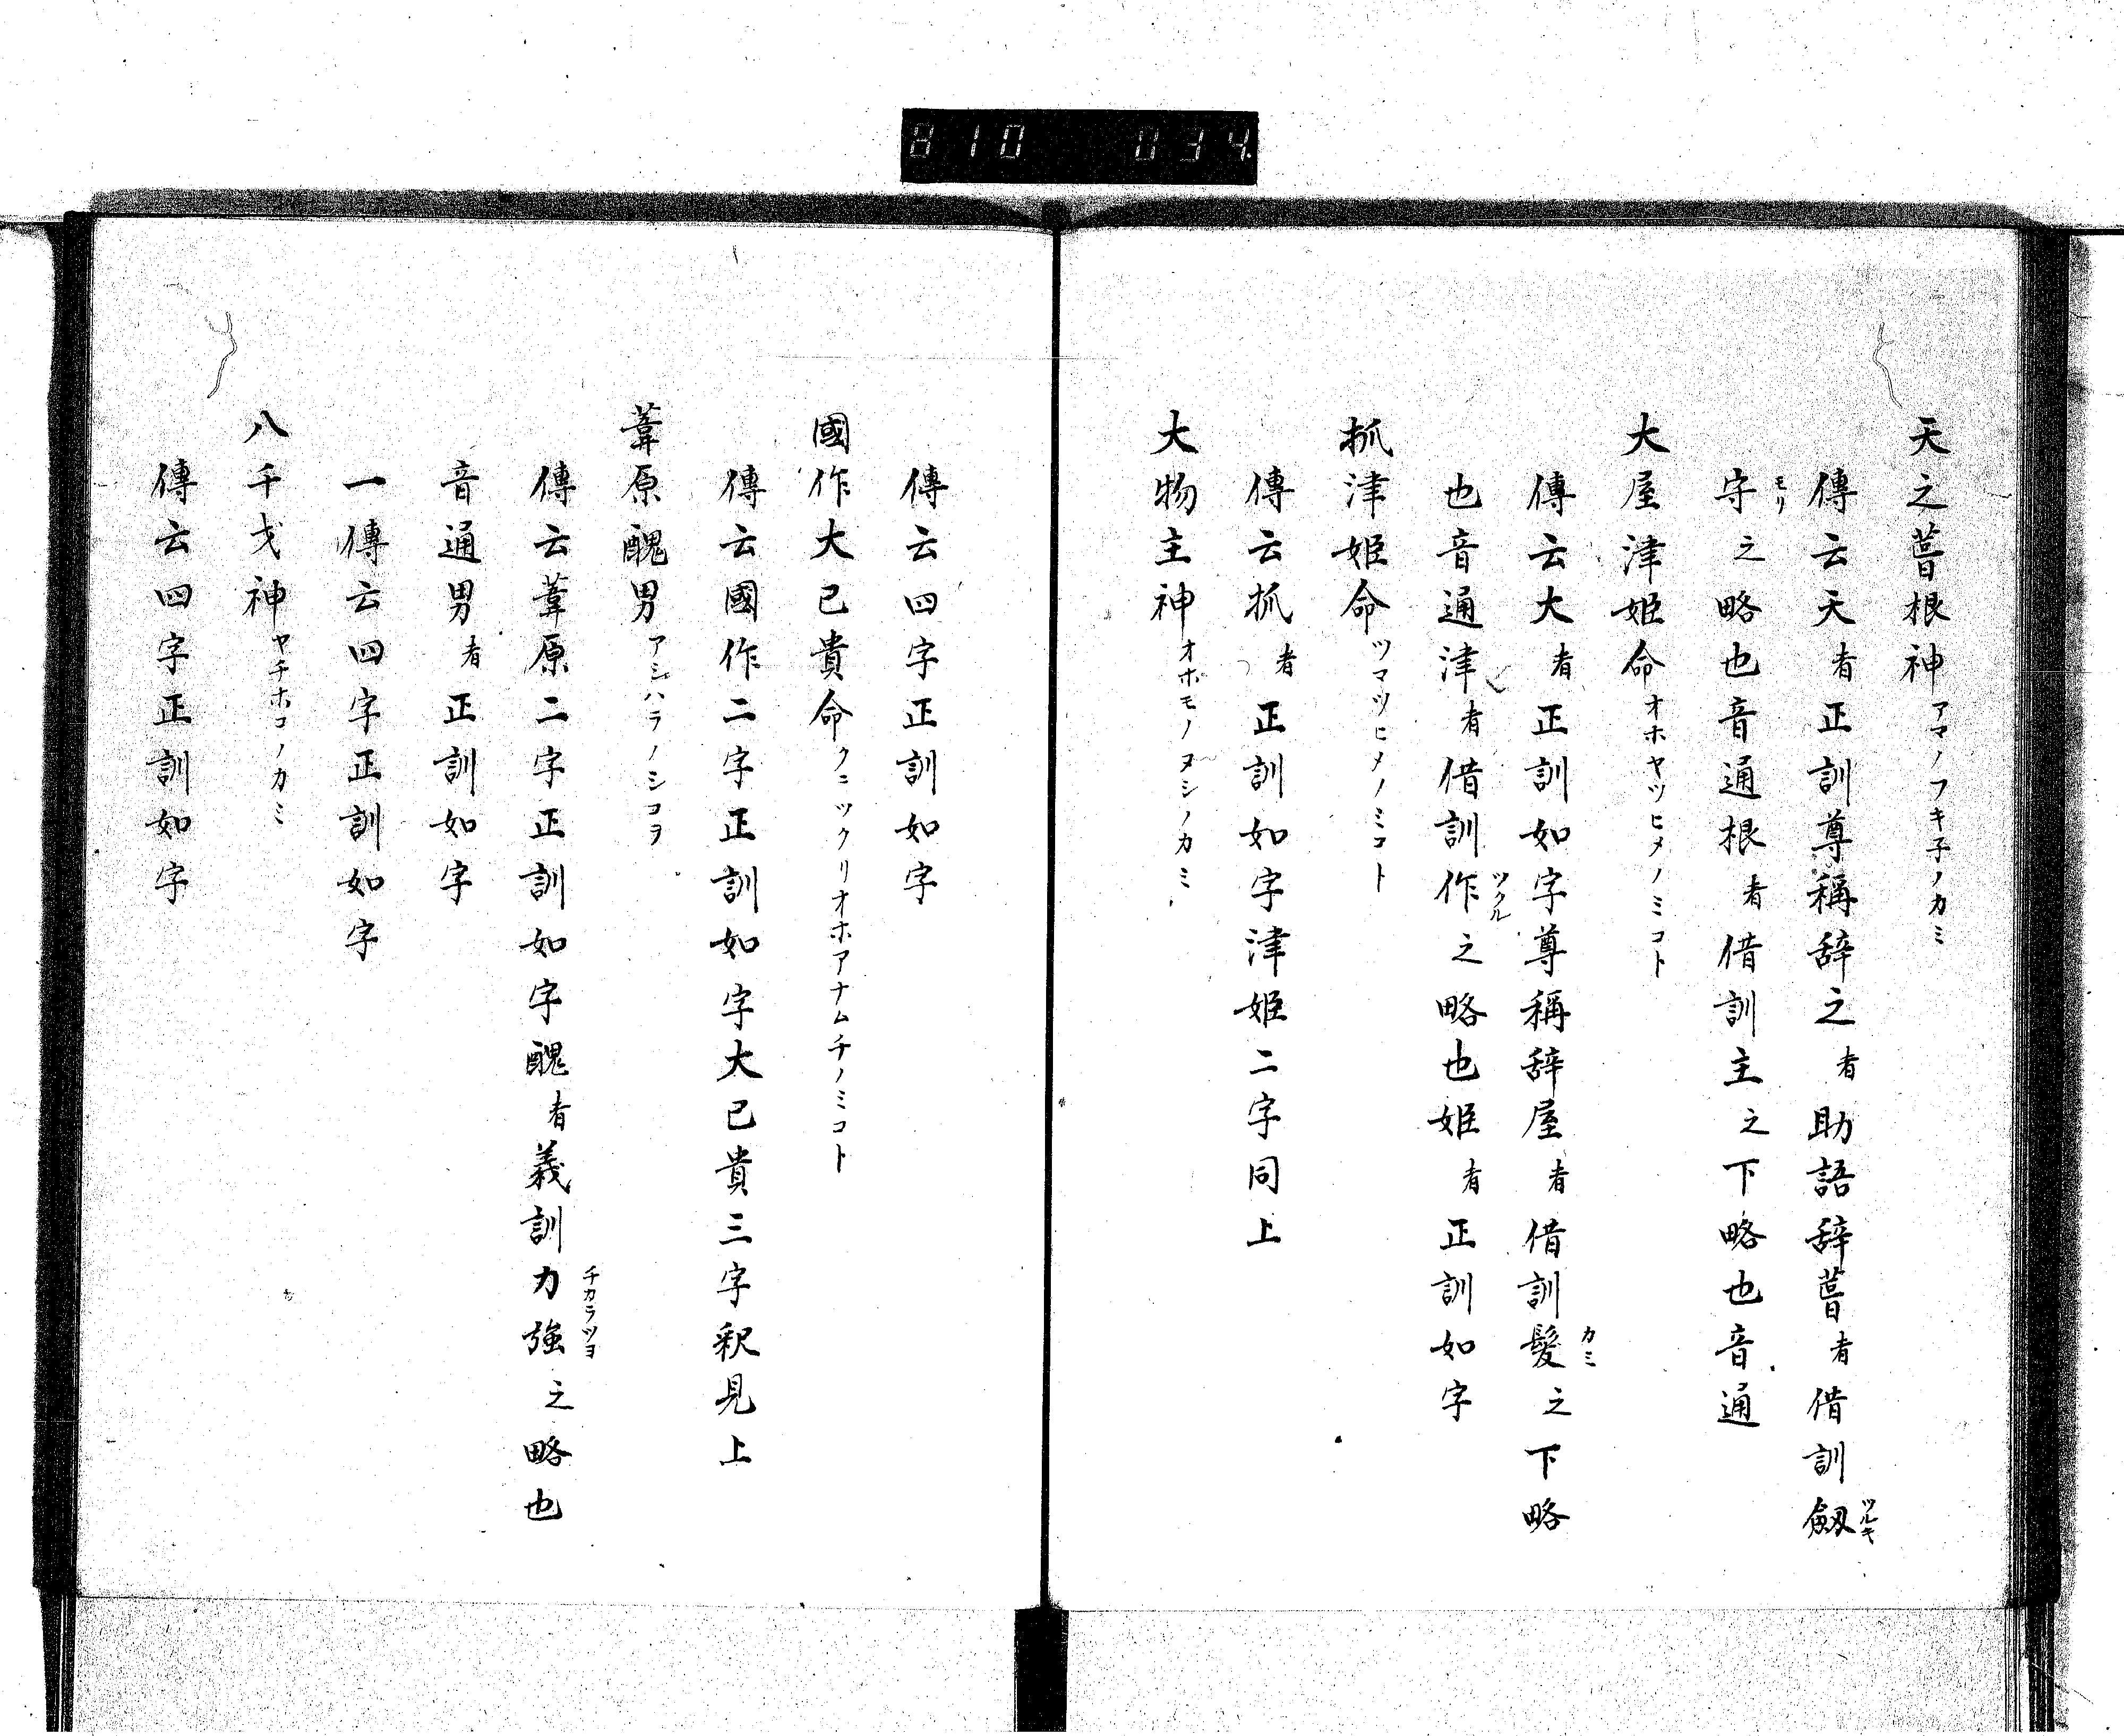 810 034.
天之葺根神アマノフキ子ノカミ
傳云天者正訓尊稱辞之者助語辞葺者借訓劔ツルキ
守モリ之略也音通根者借訓主之下略也音通
大屋津姫命オホヤツヒメノミコト
傳云大者正訓如字尊稱辞屋者借訓髮カミ之下略
也音通津者借訓作ツクル之略也姫者正訓如字
抓津姫命ツマツヒメノミコト
傳云抓者正訓如字津姫二字同上
大物主神オホモノヌシノカミ
傳云四字正訓如字
國作大已貴命クニツクリオホアナムチノミコト
傳云國作二字正訓如字大已貴三字釈見上
葦原醜男アシハラノシコヲ
傳云葦原二字正訓如字醜者義訓力強チカラツヨ之略也
音通男者正訓如字
一傳云四字正訓如字
八千戈神ヤチホコノカミ
傳云四字正訓如字